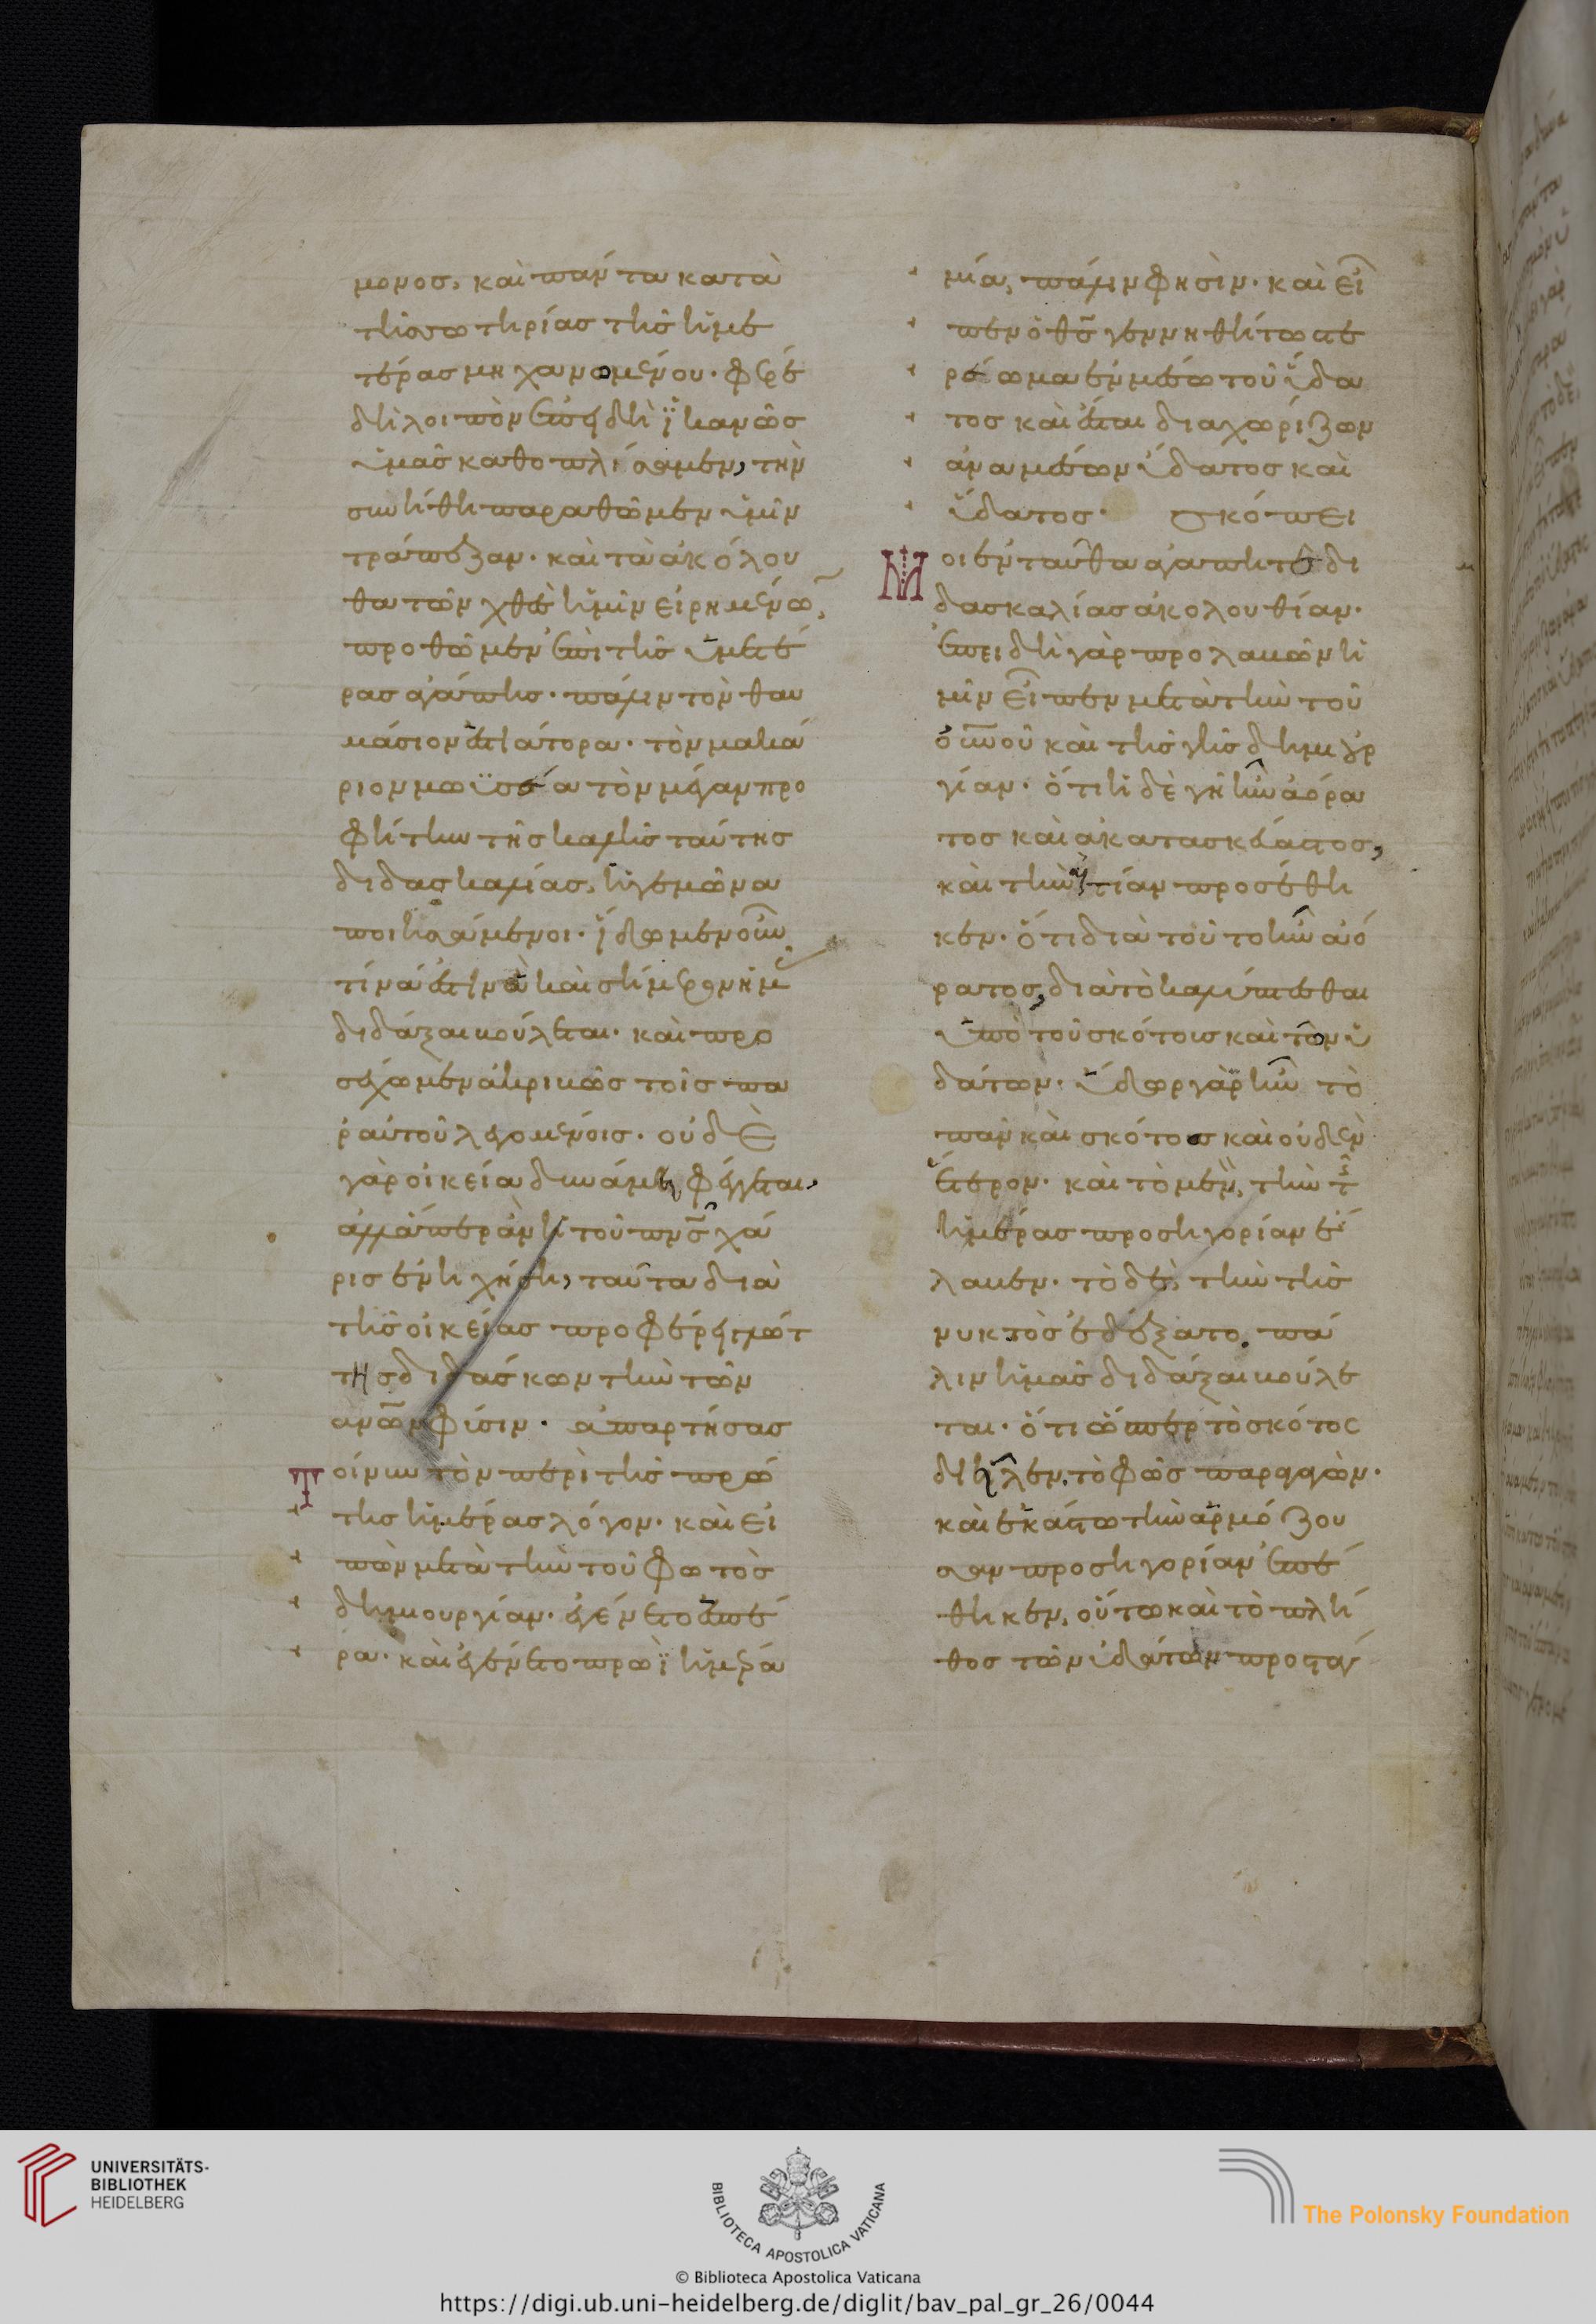 μονος, καὶ πάντα κατὰ
τῆς σωτηρίας τῆς ἡμε
τέρας μηχανωμένου. φέρε
δὴ λοιπὸν ἐπειδὴ ἱκανῶς
ὑμᾶς καθοπλίσαμεν, τὴν
συνήθη παραθῶμεν ὑμῖν
τράπεζαν. καὶ τὰ ἀκόλου
θα τῶν χθὲς ἡμῖν εἰρημένων
προθῶμεν ἐπὶ τῆς ὑμετέ
ρας ἀγάπης. πάλιν τὸν θαυ
μάσιον ἑστιάτορα. τὸν μακά
ριον μωϋσέα τὸν μέγαν προ
φήτην τῆς καλῆς ταύτης
διδασκαλίας, ἡγεμῶνα
ποιησάμενοι. ἴδωμεν οὖν
τίνα ἐστὶν ἃ καὶ σήμερον ἡμ
διδάξαι βούλεται. καὶ προ
σχῶμεν ἀκριβῶς τοῖς πα
ρ αὐτοῦ λεγομένοις. οὐδὲ
γὰρ οἰκεία δυνάμει φθέγγεται,
ἀλλ ἅπερ ἂν ἡ τοῦ πνς χά
ρις ἐνηχήση, ταῦτα διὰ
τῆς οἰκείας προφέρει γλώτ
της διδάσκων τὴν τῶν
ανων φύσιν. ἀπαρτήσας
Τοίνυν τὸν περὶ τῆς πρώ
της ἡμέρας λόγον. καὶ εἰ
πὼν μετὰ τὴν τοῦ φωτὸς
δημιουργίαν. ἐγένετο ἑσπέ
ρα. καὶ ἐγένετο πρωῒ ἡμέρα
μία, πάλιν φησὶν. καὶ εἶ
πεν ὁ θς γεννηθήτω στε
ρέωμα ἐν μέσω τοῦ ὕδα
τος καὶ ἔσται διαχωρίζον
ἀναμέσων ὕδατος καὶ
ὕδατος. σκόπει
Μοι ἐνταῦθα ἀγαπητὲ δι
δασκαλίας ἀκολουθίαν.
ἐπειδὴ γὰρ προλαβὼν ἡ
μῖν εἶπεν μετὰ τὴν τοῦ
οὐνοῦ καὶ τῆς γῆς δημιουρ
γίαν. ὅτι ἡ δὲ γῆ ἦν ἀόρα
τος καὶ ἀκατασκεύαστος,
καὶ τὴν αἰτίαν προσέθη
κεν. ὅτι διὰ τοῦτο ἦν ἀό
ρατος, διὰ τὸ καλύπτεσθαι
ὑπὸ τοῦ σκότους καὶ τῶν ὑ
δάτων. ὕδωρ γὰρ ἦν τὸ
πᾶν καὶ σκότος καὶ οὐδὲν
ἕτερον. καὶ τὸ μὲν, τὴν τῆς
ἡμέρας προσηγορίαν ἔ
λαβεν. τὸ δὲ, τὴν τῆς
νυκτὸς ἐδέξατο. πά
λιν ἡμᾶς διδάξαι βούλε
ται. ὅτι ὥσπερ τὸ σκότος
διεῖλεν τὸ φῶς παραγαγὼν.
καὶ ἑκάστω τὴν ἁρμόζου
σαν προσηγορίαν ἐπέ
θηκεν, οὕτω καὶ τὸ πλῆ
θος τῶν ὑδάτων προστάγ
UNIVERSITÄTS-
BIBLIOTHEK
HEIDELBERG
BIBLIOTECA APOSTOLICA VATICANA
The Polonsky Foundation
© Biblioteca Apostolica Vaticana
https://digi.ub.uni-heidelberg.de/diglit/bav_pal_gr_26/0044